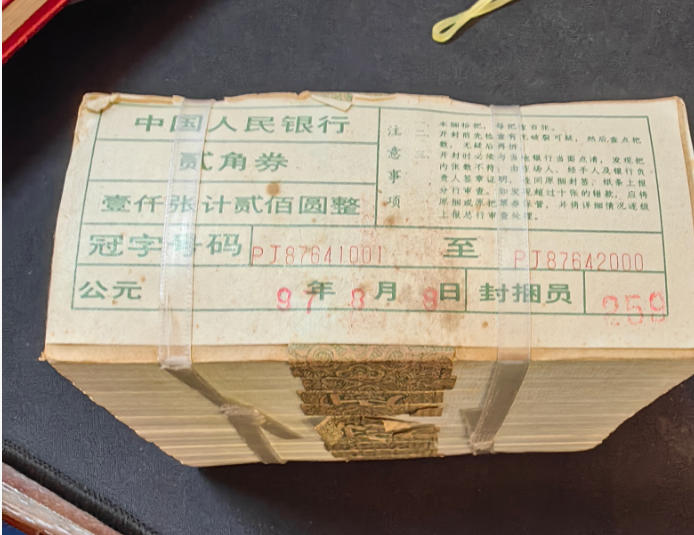 中国人民银行
贰角券
壹仟张计贰佰圆整
冠字号码 PJ87641001 至 PJ87642000
公元 97 年 8 月 9 日 封捆员 259
注意事项
一、本捆拾把，每把壹百张。
二、开封前先检查有无破裂可疑，然后查点把
数，无疑后再拆。
三、开封时必须与当地银行当面点清，发现把
内张数不符，由在场人、经手人及银行负
责人签章证明，连同原捆封签、纸条上报
分行审查。如发现超过十张的错款，应将
原捆或原把票券保管，并将详细情况逐级
上报总行审查处理。